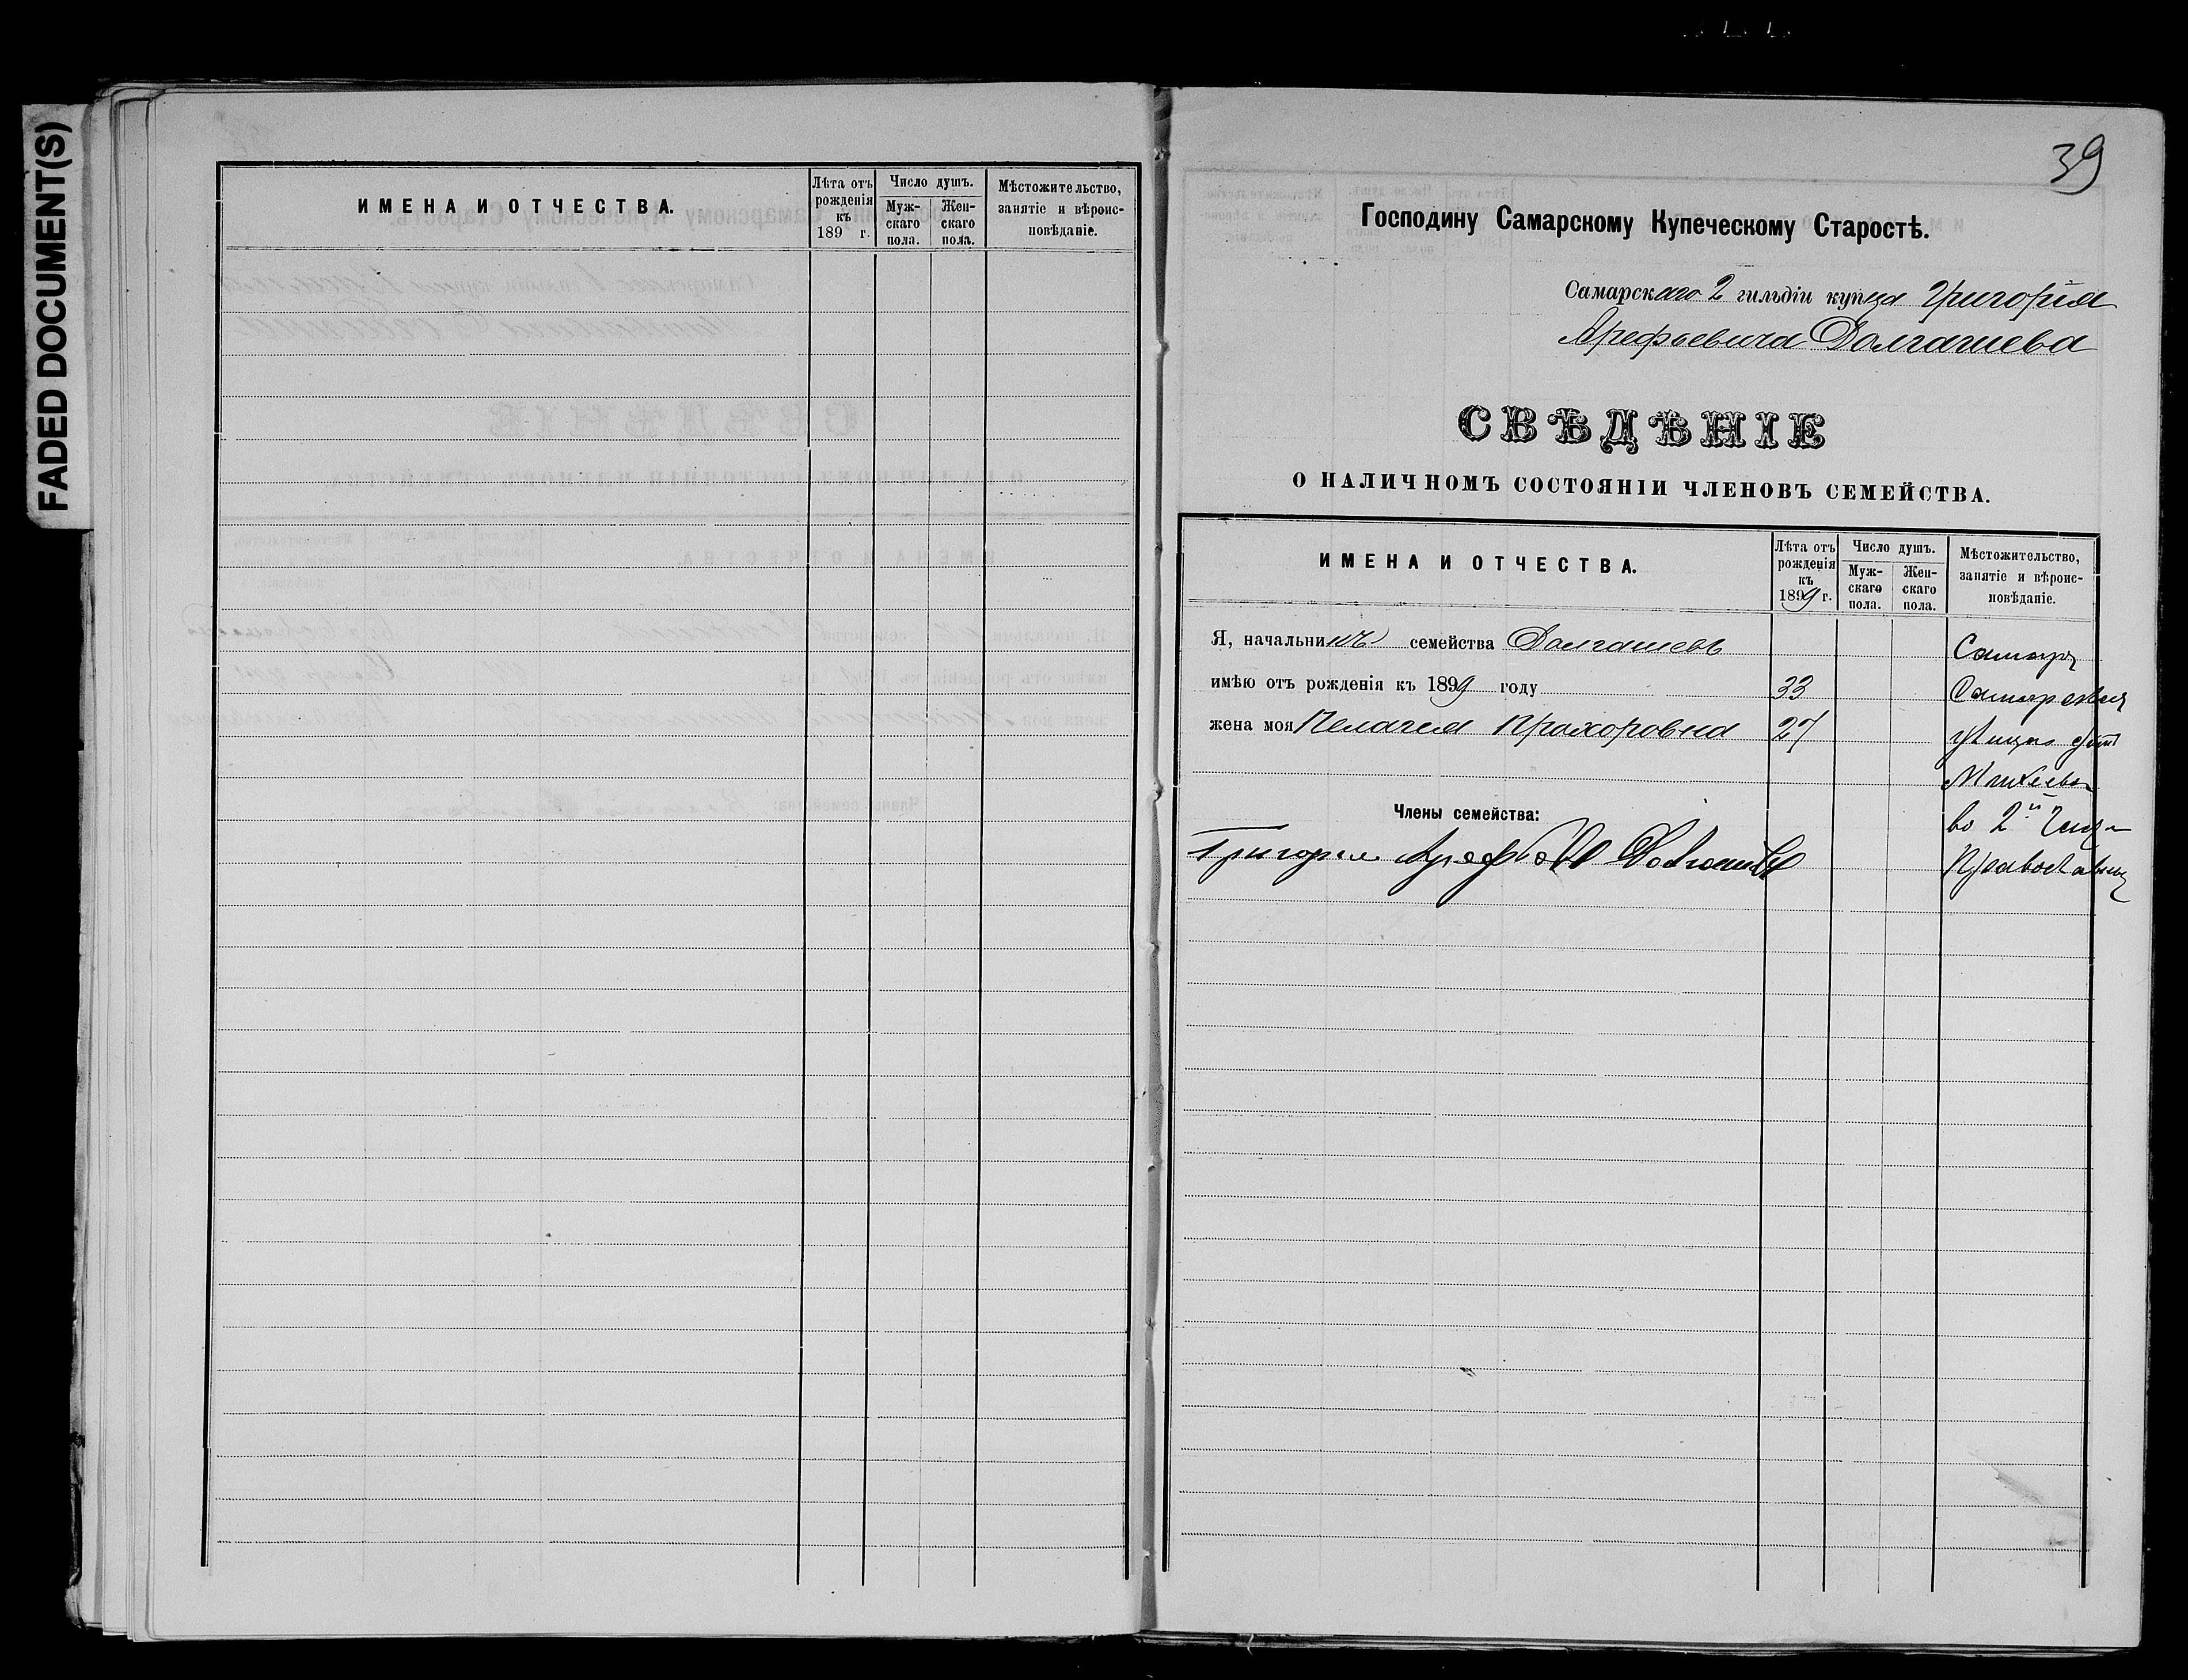 FADED DOCUMENT(S)
ИМЕНА И ОТЧЕСТВА.
Лѣта отъ рожденія къ 189 г.
Число душъ.
Мужскаго пола.
Женскаго пола.
Мѣстожительство, занятіе и вѣроисповѣданіе.
39
Господину Самарскому Купеческому Старостѣ.
Самарскаго 2 гильдіи купца Григорія
Арефьевича Долгашева
СВѢДѢНІЕ
О НАЛИЧНОМЪ СОСТОЯНІИ ЧЛЕНОВЪ СЕМЕЙСТВА.
ИМЕНА И ОТЧЕСТВА.
Лѣта отъ рожденія къ 1899 г.
Число душъ.
Мужскаго пола.
Женскаго пола.
Мѣстожительство, занятіе и вѣроисповѣданіе.
Я, начальникъ семейства Долгашевъ
имѣю отъ рожденія къ 1899 году 33
жена моя Пелагея Прохоровна 27
Члены семейства:
Самара
во 2й